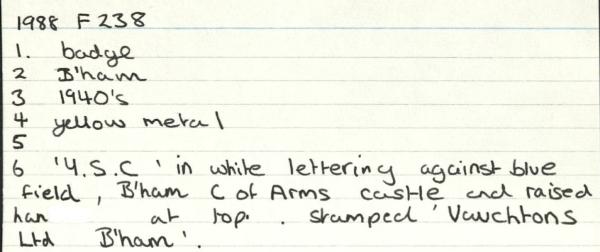 1988 F 238
1. badge
2 B'ham
3 1940's
4 yellow metal
5
6 'Y.S.C' in white lettering against blue
field, B'ham C of Arms castle and raised
at top. stamped 'Vaughtons
Ltd B'ham'.